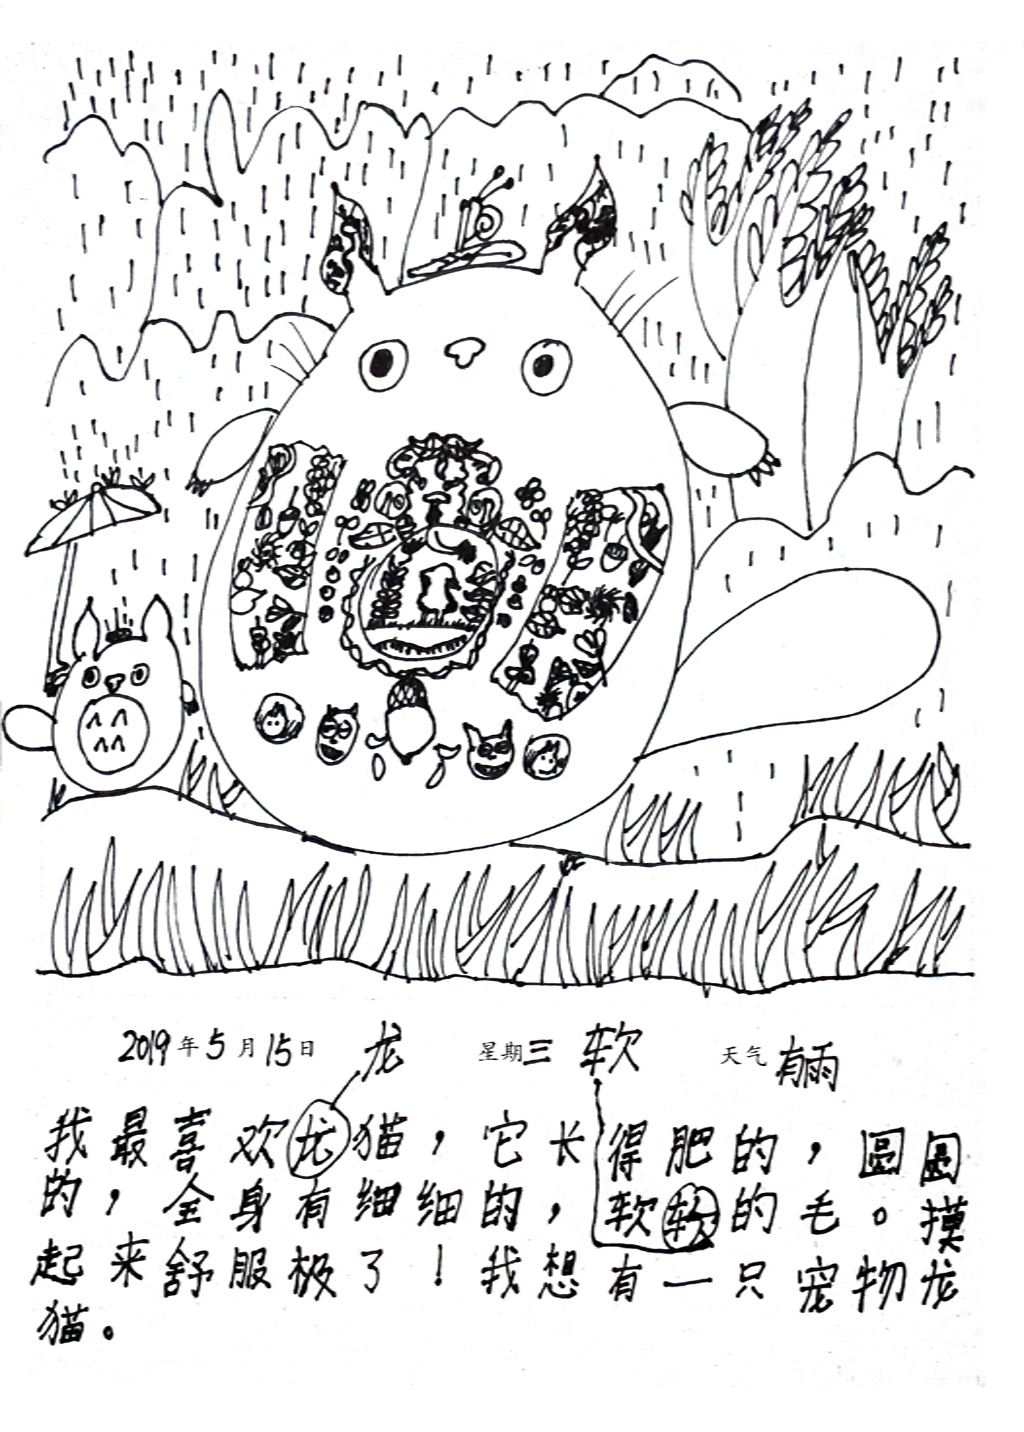 2019年5月15日 龙 星期三 软 天气有雨
我最喜欢龙猫，它长得肥的，圆圆
的，全身有细细的，软软的毛。摸
起来舒服极了！我想有一只宠物龙
猫。